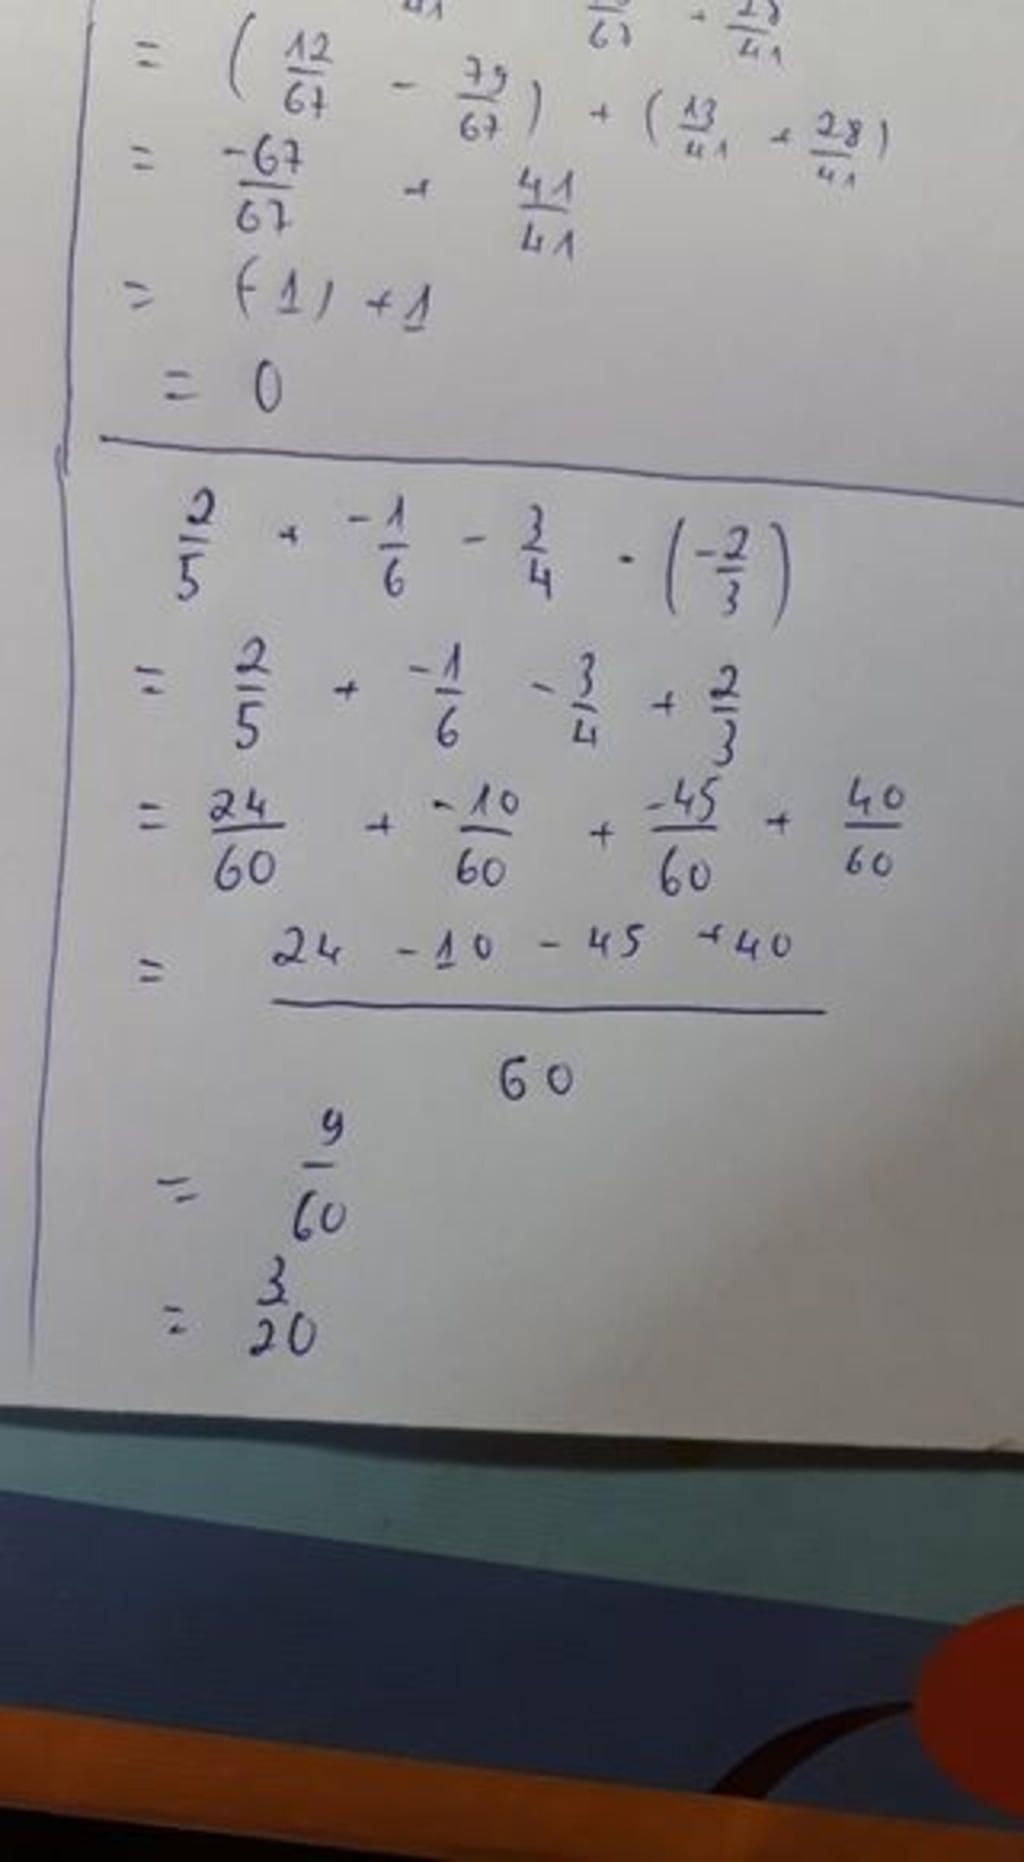 = (12/67 - 79/67) + (13/41 + 28/41)
= -67/67 + 41/41
= (-1) + 1
= 0
2/5 + -1/6 - 3/4 - (-2/3)
= 2/5 + -1/6 - 3/4 + 2/3
= 24/60 + -10/60 + -45/60 + 40/60
= 24 - 10 - 45 + 40 / 60
= 9/60
= 3/20